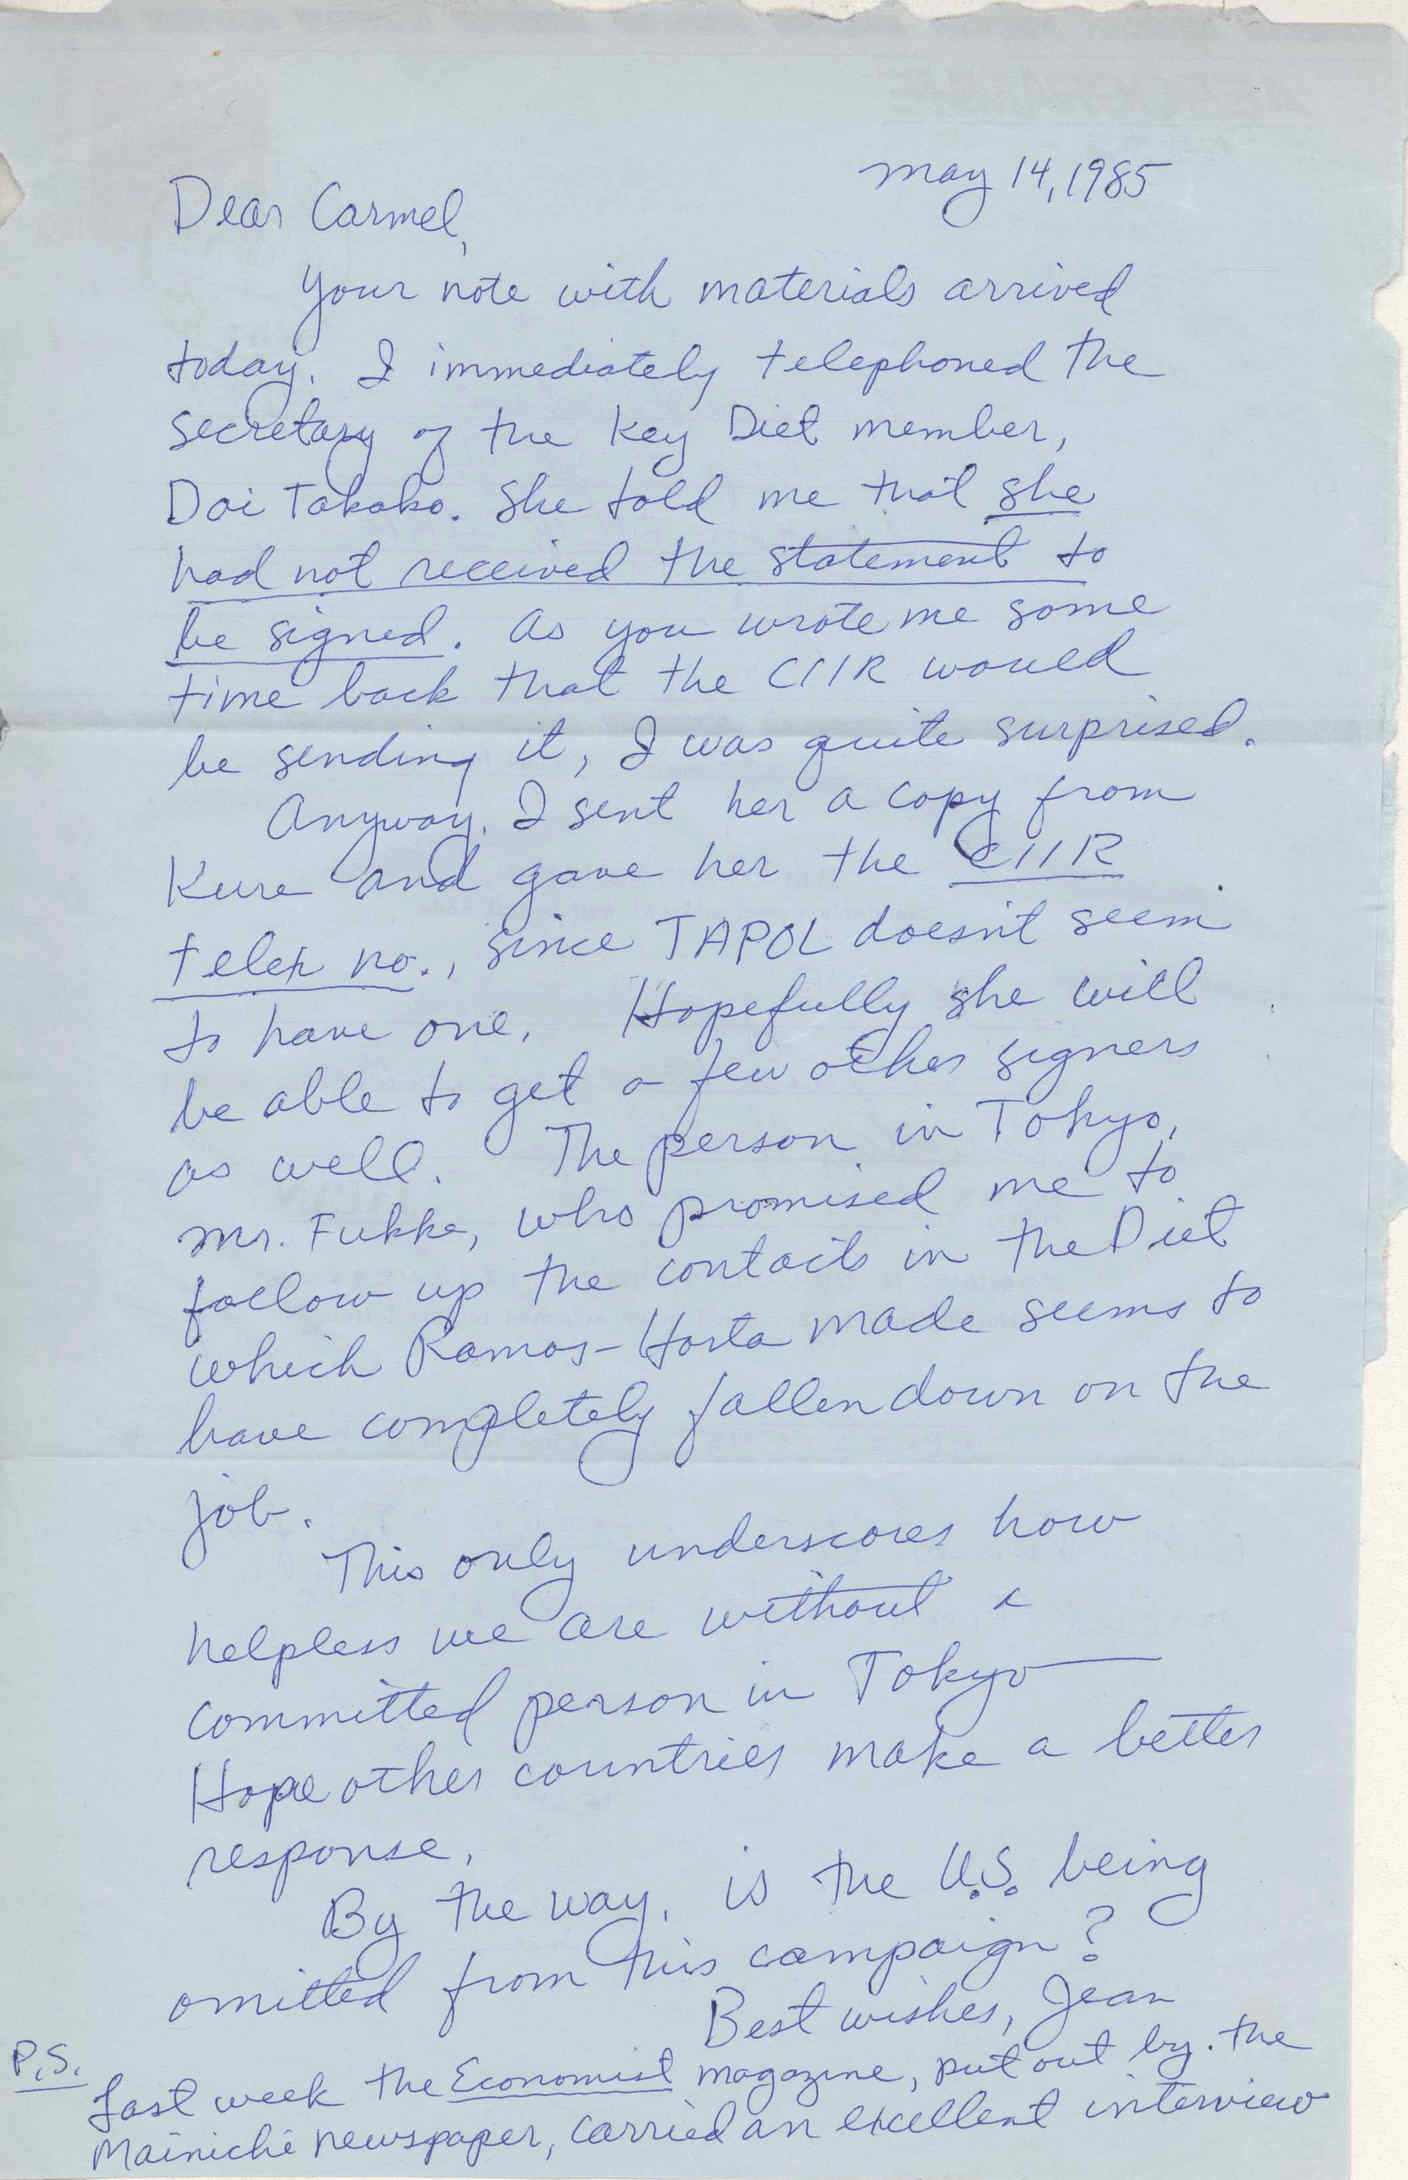 May 14, 1985
Dear Carmel,
Your note with materials arrived
today. I immediately telephoned the
secretary of the key Diet member,
Doi Takako. She told me that she
had not received the statement to
be signed. As you wrote me some
time back that the CIIR would
be sending it, I was quite surprised.
Anyway, I sent her a copy from
Kure and gave her the CIIR
telex no., since TAPOL doesn't seem
to have one. Hopefully she will
be able to get a few other signers
as well. The person in Tokyo,
Mr. Fukke, who promised me to
follow up the contacts in the Diet
which Ramos-Horta made seems to
have completely fallen down on the
job.
This only underscores how
helpless we are without a
committed person in Tokyo—
Hope other countries make a better
response.
By the way, is the U.S. being
omitted from this campaign?
Best wishes, Jean
P.S.
Last week the Economist magazine, put out by the
Mainichi newspaper, carried an excellent interview